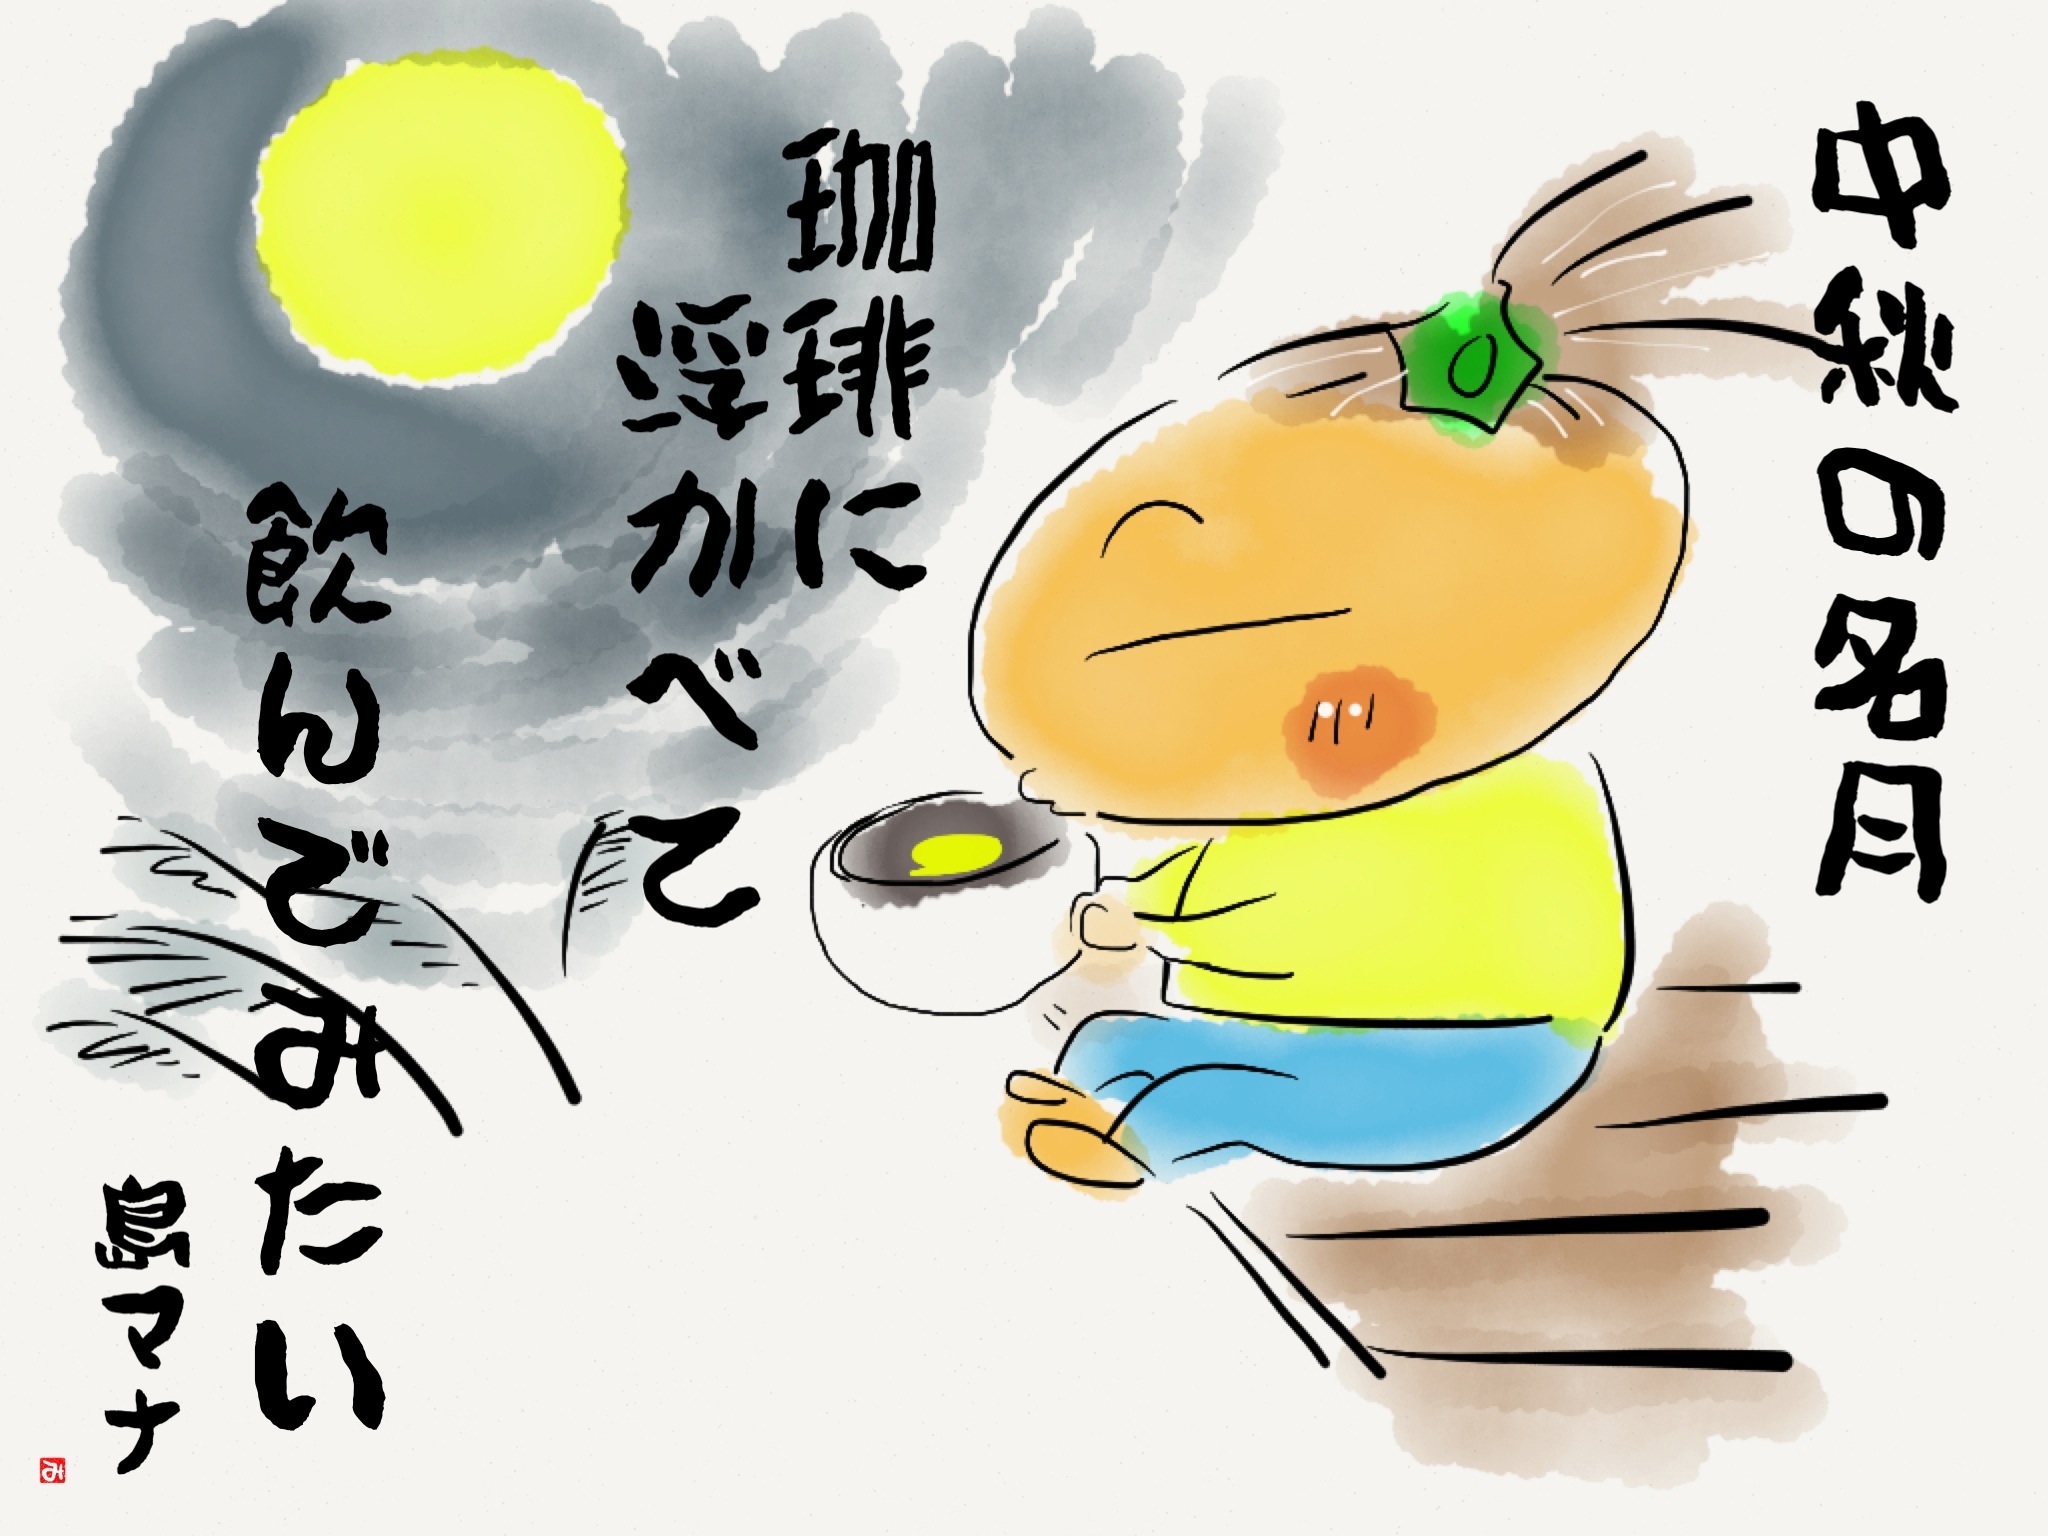 中秋の名月
珈琲に
浮かべて
飲んでみたい
島マナ
み